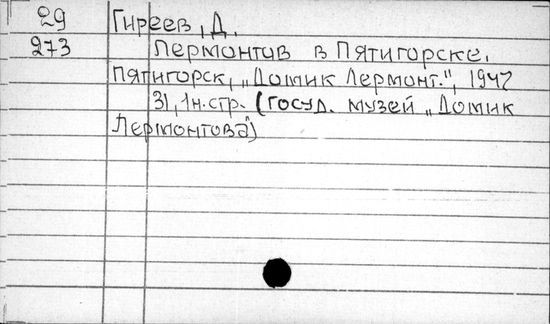 29 Гиреев, Д.
273 Лермонтов в Пятигорске.
Пятигорск, „Домик Лермонт.", 1947
31, 1н.стр. (Госуд. музей „Домик
Лермонтова")